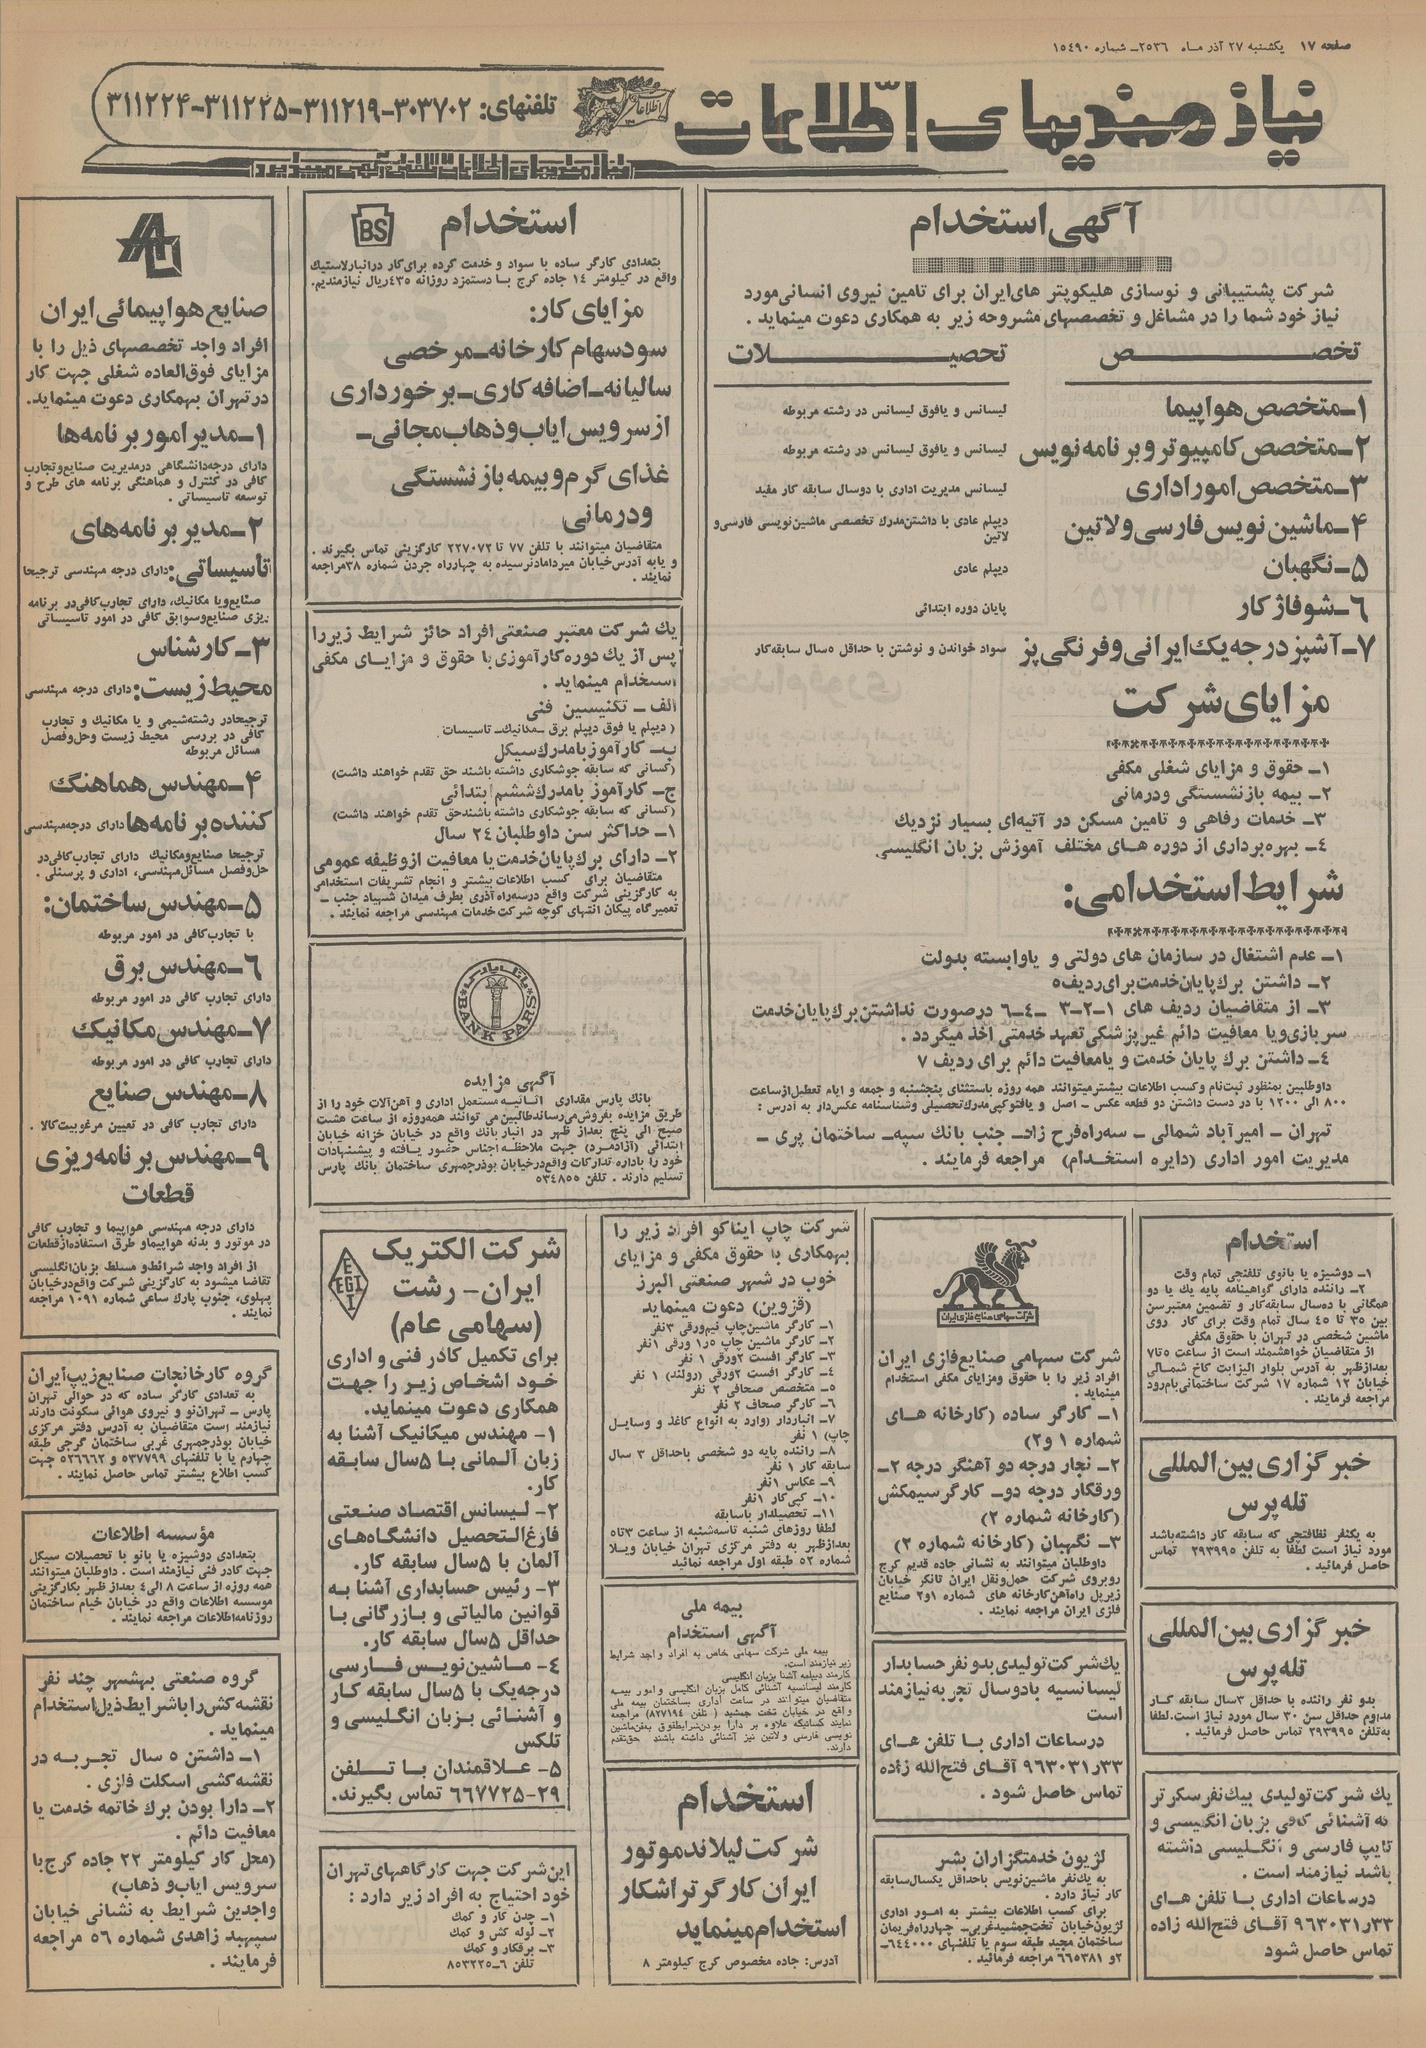 صفحه ۱۷ یکشنبه ۲۷ آذر ماه ۲۵۳۶ـ شماره ۱۵٤۹۰
نیازمندیهای اطلاعات
تلفنهای: ۳۰۳۷۰۲-۳۱۱۲۱۹-۳۱۱۲۲۵-۳۱۱۲۲۴
نیازمندیهای اطلاعات تلفنی آگهی میپذیرد
آگهی استخدام
شرکت پشتیبانی و نوسازی هلیکوپتر های ایران برای تامین نیروی انسانی مورد
نیاز خود شما را در مشاغل و تخصصهای مشروحه زیر به همکاری دعوت مینماید .
تخصص تحصیلات
۱ـ متخصص هواپیما لیسانس و یافوق لیسانس در رشته مربوطه
۲ـ متخصص کامپیوتر و برنامه نویس لیسانس و یافوق لیسانس در رشته مربوطه
۳ـ متخصص امور اداری لیسانس مدیریت اداری با دوسال سابقه کار مفید
۴ـ ماشین نویس فارسی و لاتین دیپلم عادی با داشتن مدرک تخصصی ماشین نویسی فارسی و
لاتین
۵ـ نگهبان دیپلم عادی
۶ـ شوفاژ کار پایان دوره ابتدائی
۷ـ آشپز درجه یک ایرانی و فرنگی پز سواد خواندن و نوشتن با حداقل ۵ سال سابقه کار
مزایای شرکت
۱ـ حقوق و مزایای شغلی مکفی
۲ـ بیمه بازنشستگی و درمانی
۳ـ خدمات رفاهی و تامین مسکن در آتیه‌ای بسیار نزدیک
٤ـ بهره‌برداری از دوره های مختلف آموزش بزبان انگلیسی
شرایط استخدامی:
۱ـ عدم اشتغال در سازمان های دولتی و یاوابسته بدولت
۲ـ داشتن برک پایان خدمت برای ردیف ۵
۳ـ از متقاضیان ردیف های ۱-۲-۳ -٤-٦ درصورت نداشتن برک پایان خدمت
سربازی ویا معافیت دائم غیر پزشکی تعهد خدمتی اخذ میگردد .
٤ـ داشتن برک پایان خدمت و یامعافیت دائم برای ردیف ۷
داوطلبین بمنظور ثبت‌نام وکسب اطلاعات بیشتر میتوانند همه روزه باستثنای پنجشنبه و جمعه و ایام تعطیل از ساعت
۸۰۰ الی ۱۲۰۰ با در دست داشتن دو قطعه عکس - اصل و یافتوکپی مدرک تحصیلی وشناسنامه عکس‌دار به آدرس :
تهران - امیرآباد شمالی - سه‌راه فرح زاد- جنب بانک سپه- ساختمان پری -
مدیریت امور اداری (دایره استخدام) مراجعه فرمایند .
BS
استخدام
بتعدادی کارگر ساده با سواد و خدمت کرده برای کار درانبارلاستیک
واقع در کیلومتر ۱٤ جاده کرج با دستمزد روزانه ٤۳۵ ریال نیازمندیم.
مزایای کار:
سود سهام کارخانه ـ مرخصی
سالیانه ـ اضافه کاری ـ برخورداری
از سرویس ایاب و ذهاب مجانی ـ
غذای گرم و بیمه بازنشستگی
و درمانی
متقاضیان میتوانند با تلفن ۷۷ تا ۲۲۷۰۷۲ کارگزینی تماس بگیرند .
و یابه آدرس خیابان میرداماد نرسیده به چهارراه جردن شماره ۳۸ مراجعه
نمایند .
یک شرکت معتبر صنعتی افراد حائز شرایط زیر را
پس از یک دوره کارآموزی با حقوق و مزایای مکفی
استخدام مینماید .
الف - تکنیسین فنی
( دیپلم یا فوق دیپلم برق -مکانیک- تاسیسات
ب- کارآموز بامدرک سیکل
(کسانی که سابقه جوشکاری داشته باشند حق تقدم خواهند داشت)
ج- کارآموز بامدرک ششم ابتدائی
(کسانی که سابقه جوشکاری داشته باشند حق تقدم خواهند داشت)
۱- حداکثر سن داوطلبان ۲٤ سال
۲- دارای برک پایان خدمت یا معافیت از وظیفه عمومی
متقاضیان برای کسب اطلاعات بیشتر و انجام تشریفات استخدامی
به کارگزینی شرکت واقع در سه راه آذری بطرف میدان شهیاد جنب -
تعمیرگاه پیکان انتهای کوچه شرکت خدمات مهندسی مراجعه نمایند .
بانک پارس
BANK PARS
آگهی مزایده
بانک پارس مقداری اثاثیه مستعمل اداری و آهن‌آلات خود را از
طریق مزایده بفروش می‌رساند طالبین می توانند همه‌روزه از ساعت هشت
صبح الی پنج بعداز ظهر در انبار بانک واقع در خیابان خزانه خیابان
ابتدائی (آزادمرد) جهت ملاحظه اجناس حضور یافته و پیشنهادات
خود را باداره تدارکات واقع درخیابان بوذرجمهری ساختمان بانک پارس
تسلیم دارند . تلفن ۵۳٤۸۵۵
صنایع هواپیمائی ایران
افراد واجد تخصصهای ذیل را با
مزایای فوق‌العاده شغلی جهت کار
در تهران بهمکاری دعوت مینماید.
۱ـ مدیر امور برنامه‌ها
دارای درجه دانشگاهی درمدیریت صنایع وتجارب
کافی در کنترل و هماهنگی برنامه های طرح و
توسعه تاسیساتی .
۲ـ مدیر برنامه‌های
تأسیساتی: دارای درجه مهندسی ترجیحا
صنایع ویا مکانیک، دارای تجارب کافی در برنامه
ریزی صنایع وسوابق کافی در امور تاسیساتی
۳ـ کارشناس
محیط زیست: دارای درجه مهندسی
ترجیحا در رشته شیمی و یا مکانیک و تجارب
کافی در بررسی محیط زیست وحل وفصل
مسائل مربوطه
۴ـ مهندس هماهنگ
کننده برنامه‌ها دارای درجه مهندسی
ترجیحا صنایع ومکانیک دارای تجارب کافی در
حل وفصل مسائل مهندسی، اداری و پرسنلی .
۵ـ مهندس ساختمان:
با تجارب کافی در امور مربوطه
۶ـ مهندس برق
دارای تجارب کافی در امور مربوطه
۷ـ مهندس مکانیک
دارای تجارب کافی در امور مربوطه
۸ـ مهندس صنایع
دارای تجارب کافی در تعیین مرغوبیت کالا .
۹ـ مهندس برنامه ریزی
قطعات
دارای درجه مهندسی هواپیما و تجارب کافی
در موتور و بدنه هواپیما و طرق استفاده از قطعات
از افراد واجد شرائط و مسلط بزبان انگلیسی
تقاضا میشود به کارگزینی شرکت واقع در خیابان
پهلوی، جنوب پارک ساعی شماره ۱۰۹۱ مراجعه
نمایند
استخدام
۱- دوشیزه یا بانوی تلفنچی تمام وقت
۲- راننده دارای گواهینامه پایه یک یا دو
همگانی با ده سال سابقه کار و تضمین معتبر سن
بین ۳۵ تا ٤۵ سال تمام وقت برای کار روی
ماشین شخصی در تهران با حقوق مکفی
از متقاضیان خواهشمند است از ساعت ۵ تا ۷
بعدازظهر به آدرس بلوار الیزابت کاخ شمالی
خیابان ۱۲ شماره ۱۷ شرکت ساختمانی بام‌رود
مراجعه فرمایند .
خبرگزاری بین‌المللی
تله پرس
به یکنفر نظافتچی که سابقه کار داشته باشد
مورد نیاز است لطفا به تلفن ۲۹۳۹۹۵ تماس
حاصل فرمائید .
خبرگزاری بین‌المللی
تله پرس
بدو نفر راننده با حداقل ۳ سال سابقه کار
مداوم حداقل سن ۳۰ سال مورد نیاز است. لطفا
به تلفن ۲۹۳۹۹۵ تماس حاصل فرمائید .
یک شرکت تولیدی بیک نفر سکرتر
به آشنائی کافی بزبان انگلیسی و
تایپ فارسی و انگلیسی داشته
باشد نیازمند است .
درساعات اداری با تلفن های
۳۳ر۹۶۳۰۳۱ آقای فتح‌الله زاده
تماس حاصل شود
شرکت سهامی صنایع فلزی ایران
شرکت سهامی صنایع فلزی ایران
افراد زیر را با حقوق ومزایای مکفی استخدام
مینماید .
۱- کارگر ساده (کارخانه های
شماره ۱ و۲)
۲- نجار درجه دو آهنگر درجه ۲-
ورقکار درجه دو- کارگر سیمکش
(کارخانه شماره ۲)
۳- نگهبان (کارخانه شماره ۲)
داوطلبان میتوانند به نشانی جاده قدیم کرج
روبروی شرکت حمل ونقل ایران تانکر خیابان
زیرپل راه‌آهن کارخانه های شماره ۱و۲ صنایع
فلزی ایران مراجعه نمایند .
یک شرکت تولیدی بدو نفر حسابدار
لیسانسیه بادوسال تجربه نیازمند
است
درساعات اداری با تلفن های
۳۳ر۹۶۳۰۳۱ آقای فتح‌الله زاده
تماس حاصل شود .
لژیون خدمتگزاران بشر
به یک‌نفر ماشین‌نویس باحداقل یکسال سابقه
کار نیاز دارد .
برای کسب اطلاعات بیشتر به امور اداری
لژیون خیابان تخت جمشید غربی- چهارراه فریمان
ساختمان مجید طبقه سوم یا تلفنهای ٦٤٤۰۰۰-
۲و ٦٦۵۳۸۱ مراجعه فرمائید .
شرکت چاپ ایناکو افراد زیر را
بهمکاری با حقوق مکفی و مزایای
خوب در شهر صنعتی البرز
(قزوین) دعوت مینماید
۱- کارگر ماشین چاپ نیم‌ورقی ۳ نفر
۲- کارگر ماشین چاپ ۵ر۱ ورقی ۱ نفر
۳- کارگر افست ۲ورقی ۱ نفر
٤- کارگر افست ۲ورقی (رولند) ۱ نفر
۵- متخصص صحافی ۲ نفر
٦- کارگر صحاف ۲ نفر
۷- انباردار (وارد به انواع کاغذ و وسایل
چاپ) ۱ نفر
۸- راننده پایه دو شخصی باحداقل ۳ سال
سابقه کار ۱ نفر
۹- عکاس ۱ نفر
۱۰- کپی کار ۱ نفر
۱۱- تحصیلدار باسابقه
لطفا روزهای شنبه تاسه‌شنبه از ساعت ۳ تا ۵
بعدازظهر به دفتر مرکزی تهران خیابان ویلا
شماره ۵۲ طبقه اول مراجعه نمائید
بیمه ملی
آگهی استخدام
بیمه ملی شرکت سهامی خاص به افراد واجد شرایط
زیر نیازمند است.
کارمند دیپلمه آشنا بزبان انگلیسی
کارمند لیسانسیه آشنائی کامل بزبان انگلیسی و امور بیمه
متقاضیان میتوانند در ساعت اداری بساختمان بیمه ملی
واقع در خیابان تخت جمشید ( تلفن ۸۲۷۱۹٤) مراجعه
نمایند کسانیکه علاوه بر دارا بودن شرایط فوق به فن ماشین
نویسی فارسی و لاتین نیز آشنائی داشته باشند حق تقدم
دارند.
استخدام
شرکت لیلاند موتور
ایران کارگر تراشکار
استخدام مینماید
آدرس: جاده مخصوص کرج کیلومتر ۸
EGI
شرکت الکتریک
ایران- رشت
(سهامی عام)
برای تکمیل کادر فنی و اداری
خود اشخاص زیر را جهت
همکاری دعوت مینماید.
۱- مهندس میکانیک آشنا به
زبان آلمانی با ۵ سال سابقه
کار.
۲- لیسانس اقتصاد صنعتی
فارغ‌التحصیل دانشگاه‌های
آلمان با ۵ سال سابقه کار.
۳- رئیس حسابداری آشنا به
قوانین مالیاتی و بازرگانی با
حداقل ۵ سال سابقه کار.
۴- ماشین‌نویس فارسی
درجه یک با ۵ سال سابقه کار
و آشنائی بزبان انگلیسی و
تلکس
۵- علاقمندان با تلفن
۲۹-۶۶۷۷۲۵ تماس بگیرند.
این شرکت جهت کارگاههای تهران
خود احتیاج به افراد زیر دارد :
۱- چدن کار و کمک
۲- لوله کش و کمک
۳- برقکار و کمک
تلفن ٦-۸۵۳۲۲۵
گروه کارخانجات صنایع زیپ ایران
به تعدادی کارگر ساده که در حوالی تهران
پارس - تهران‌نو و نیروی هوائی سکونت دارند
نیازمند است متقاضیان به آدرس دفتر مرکزی
خیابان بوذرجمهری غربی ساختمان گرجی طبقه
چهارم یا با تلفنهای ۵۳۷۷۹۹ و ۵۳٦٦٦۲ جهت
کسب اطلاع بیشتر تماس حاصل نمایند .
مؤسسه اطلاعات
بتعدادی دوشیزه یا بانو با تحصیلات سیکل
جهت کادر فنی نیازمند است . داوطلبان میتوانند
همه روزه از ساعت ۸ الی ٤ بعداز ظهر بکارگزینی
موسسه اطلاعات واقع در خیابان خیام ساختمان
روزنامه اطلاعات مراجعه نمایند .
گروه صنعتی بهشهر چند نفر
نقشه کش را با شرایط ذیل استخدام
مینماید .
۱- داشتن ۵ سال تجربه در
نقشه کشی اسکلت فلزی .
۲- دارا بودن برک خاتمه خدمت یا
معافیت دائم .
(محل کار کیلومتر ۲۲ جاده کرج با
سرویس ایاب و ذهاب)
واجدین شرایط به نشانی خیابان
سپهبد زاهدی شماره ۵٦ مراجعه
فرمایند .